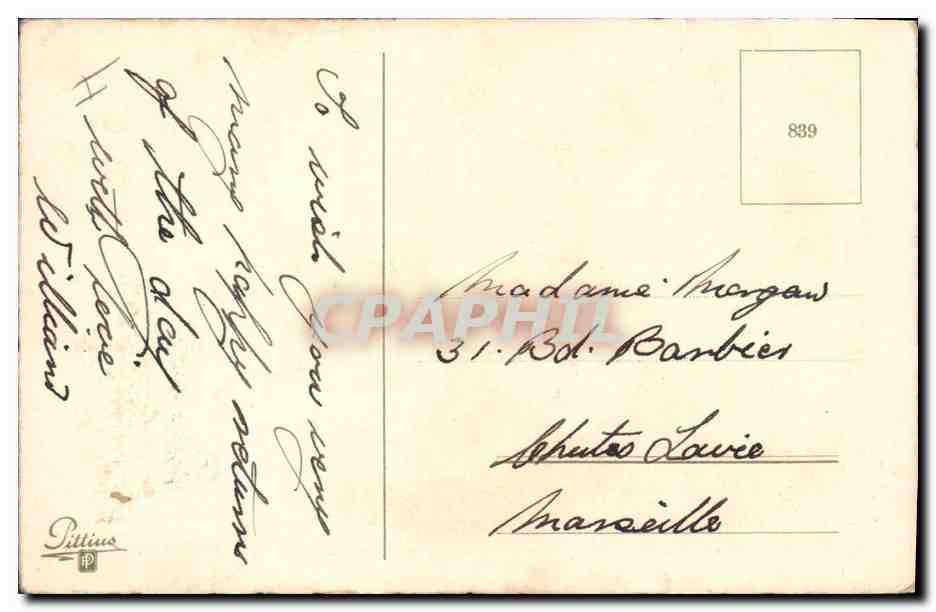 To wish you very
many happy returns
of the day
with love
William
839
Madame Morgan
31. Bd. Barbier
Chutes Lavie
Marseille
Pittius
CPAPHIL